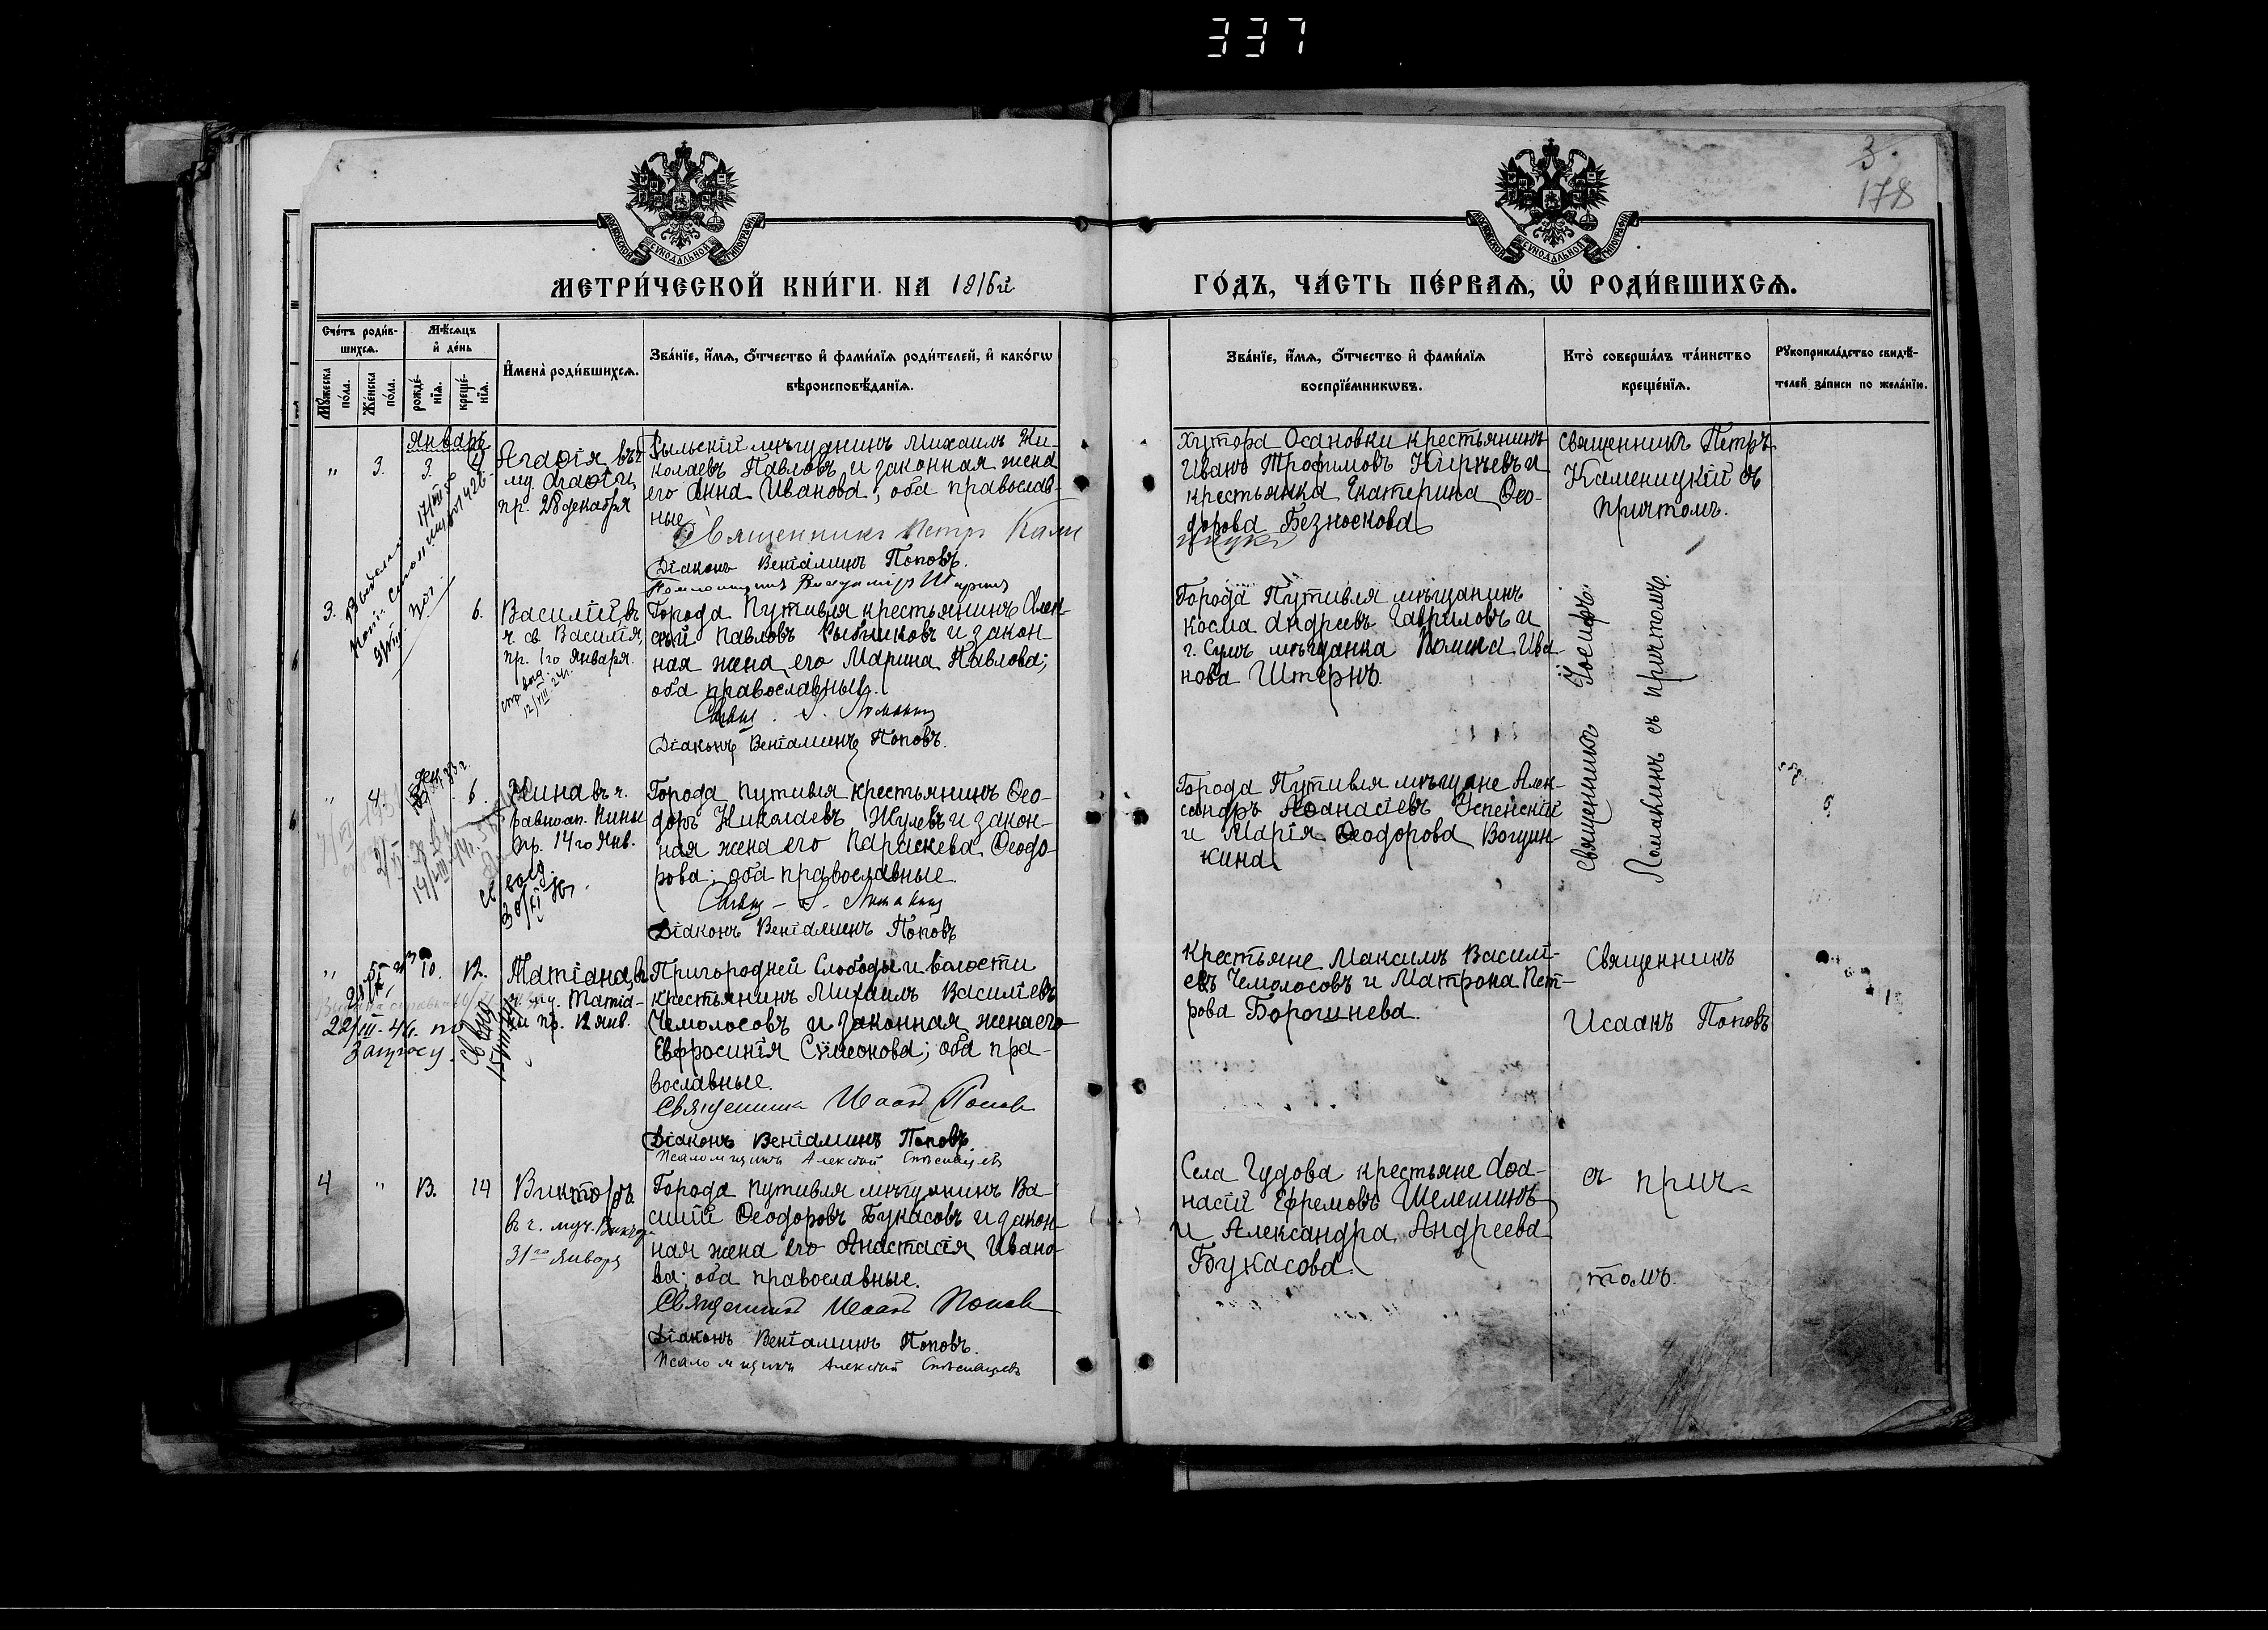 337
3.
178
МОСКОВСКОЙ СѴНОДАЛЬНОЙ ТИПОГРАФІИ
МОСКОВСКОЙ СѴНОДАЛЬНОЙ ТИПОГРАФІИ
МЕТРИ́ЧЕСКОЙ КНИ́ГИ НА 1916й
ГО́ДЪ, ЧА́СТЬ ПЕ́РВАѦ, Ѡ҆ РОДИ́ВШИХСѦ.
Сче́тъ роди́в-
шихсѧ.
Мꙋ́жеска
по́ла.
Же́нска
по́ла.
Мѣ́сѧцъ
и҆ де́нь
рожде́-
нїѧ.
креще́-
нїѧ.
И҆мена̀ роди́вшихсѧ.
Зва́нїе, и҆́мѧ, ѻ҆́тчество и҆ фами́лїѧ роди́телей, и҆ како́гѡ
вѣроисповѣ́данїѧ.
Зва́нїе, и҆́мѧ, ѻ҆́тчество и҆ фами́лїѧ
воспрїе́мникѡвъ.
Кто̀ соверша́лъ та́инство
креще́нїѧ.
Рꙋкоприкла́дство свидѣ́-
телей за́писи по жела́нїю.
Январь
" 3. 3.
Агаѳія въ ч.
му. Агаѳіи
пр. 28 декабря
Рыльскій мѣщанинъ Михаилъ Ни-
колаевъ Павловъ и законная жена
его Анна Иванова; оба православ-
ные.
Священникъ Петръ Каме
Діаконъ Веніаминъ Поповъ.
Хутора Осановки крестьянинъ
Иванъ Трофимовъ Кирѣевъ и
крестьянка Екатерина Ѳео-
дорова Безноскова
ницкій
Священникъ Петръ
Каменицкій съ
причтомъ.
3. 6.
Василій въ
ч. св. Василія,
пр. 1го Января.
12/VIII 24г.
Города Путивля крестьянинъ Алек-
сѣй Павловъ Рыбниковъ и закон-
ная жена его Марина Павлова;
оба православные.
Свящ. І. Ломакинъ
Діаконъ Веніаминъ Поповъ.
Города Путивля мѣщанинъ
Косма Андреевъ Гавриловъ и
г. Сумъ мѣщанка Ива-
нова Штернъ.
Священникъ Іосифъ
Ломакинъ съ причтомъ.
" 4. 6.
Нина въ ч.
равноап. Нины
пр. 14го Янв.
Города Путивля крестьянинъ Ѳео-
доръ Николаевъ Жулевъ и закон-
ная жена его Параскева Ѳеодо-
рова; оба православные
Свящ. І. Ломакинъ
Діаконъ Веніаминъ Поповъ
Города Путивля мѣщане Алек-
сандръ Аѳанасіевъ Успенскій
и Марія Ѳеодорова
кина
" 5. 10. 12.
Татіана въ
ч. му. Татіа-
ны пр. 12 янв.
22/III-46. по
запросу.
Пригородней Слободы и волости
крестьянинъ Михаилъ Василіевъ
Чемолосовъ и законная жена его
Евфросинія Сѵмеонова; оба пра-
вославные.
Священникъ Исаакъ Поповъ
Діаконъ Веніаминъ Поповъ
Псаломщикъ Алексѣй Спѣсивцевъ
Крестьяне Максимъ Василі-
евъ Чемолосовъ и Матрона Пет-
рова
Священникъ
Исаакъ Поповъ
4 " 13. 14
Викторъ
въ ч. муч. Виктора
31го Января
Города Путивля мѣщанинъ Ва-
силій Ѳеодоровъ Букасовъ и закон-
ная жена его Анастасія Ивано-
ва; оба православные.
Священникъ Исаакъ Поповъ
Діаконъ Веніаминъ Поповъ.
Псаломщикъ Алексѣй Спѣсивцевъ
Села Гудова крестьяне Аѳа-
насій Ефремовъ Шелеминъ
и Александра Андреева
Букасова.
съ прич-
томъ.